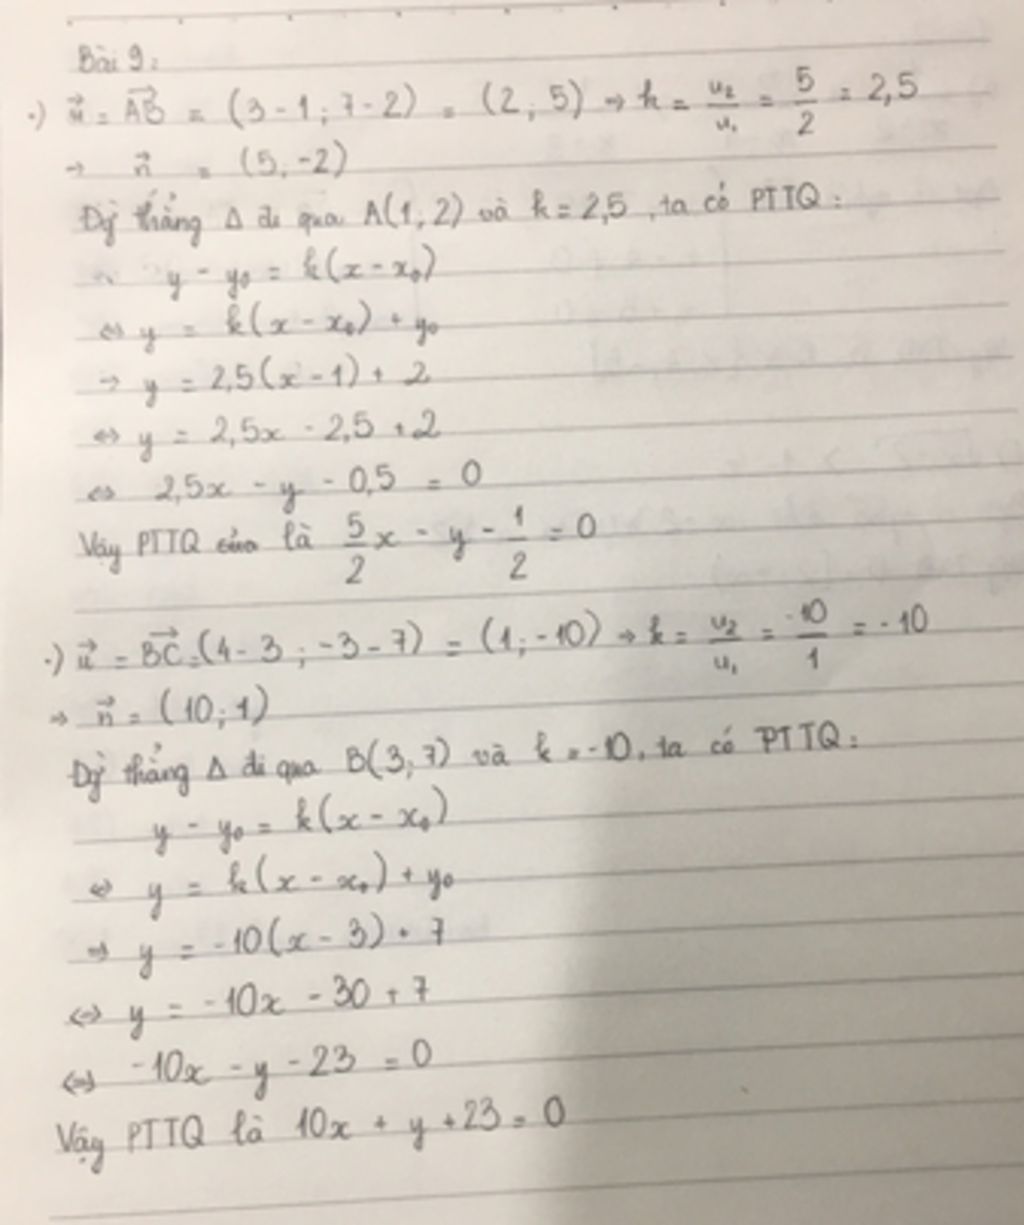 Bài 9:
•) u⃗ = AB⃗ = (3 - 1 ; 7 - 2) = (2 ; 5) → k = u₂/u₁ = 5/2 = 2,5
→ n⃗ = (5; -2)
Đg thẳng Δ đi qua A(1; 2) và k = 2,5 , ta có PTTQ :
y - y₀ = k(x - x₀)
⇔ y = k(x - x₀) + y₀
→ y = 2,5(x - 1) + 2
⇔ y = 2,5x - 2,5 + 2
⇔ 2,5x - y - 0,5 = 0
Vậy PTTQ của là 5/2 x - y - 1/2 = 0
•) u⃗ = BC⃗ = (4 - 3 ; -3 - 7) = (1; -10) → k = u₂/u₁ = -10/1 = -10
→ n⃗ = (10; 1)
Đg thẳng Δ đi qua B(3; 7) và k = -10, ta có PTTQ :
y - y₀ = k(x - x₀)
⇔ y = k(x - x₀) + y₀
→ y = -10(x - 3) + 7
⇔ y = -10x - 30 + 7
⇔ -10x - y - 23 = 0
Vậy PTTQ là 10x + y + 23 = 0